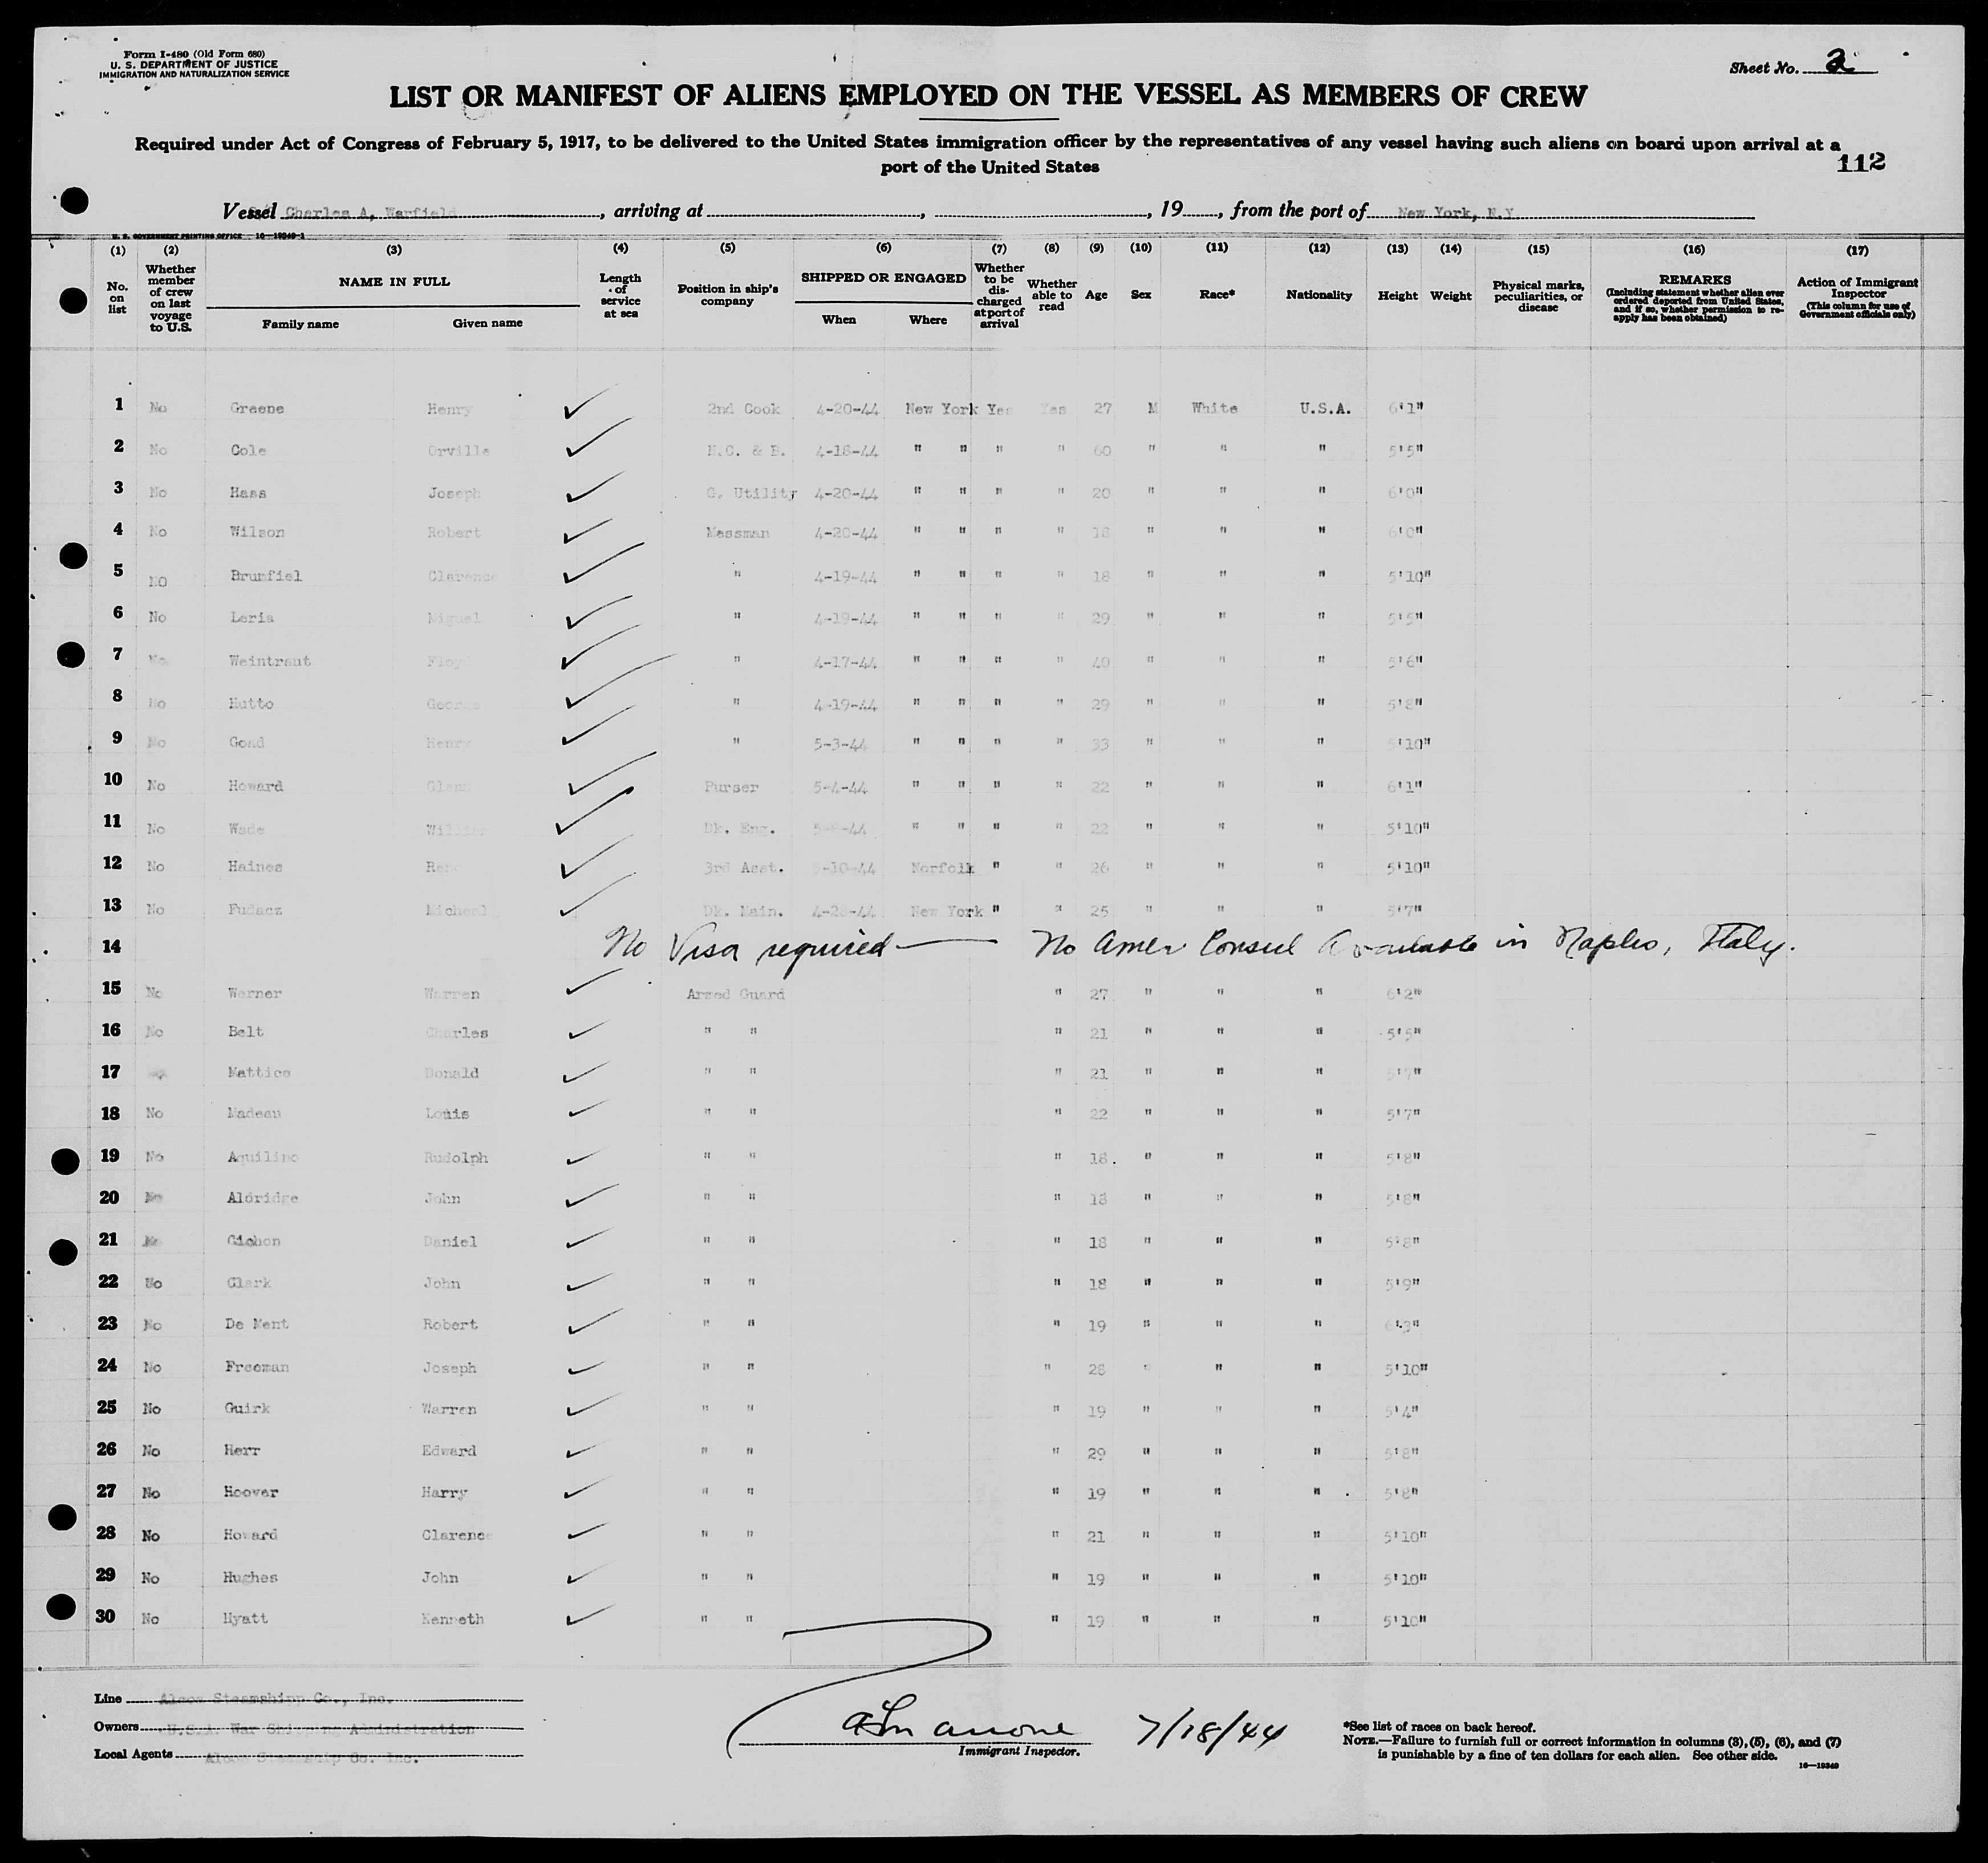 Form I-480 (Old Form 680)
U. S. DEPARTMENT OF JUSTICE
IMMIGRATION AND NATURALIZATION SERVICE
Sheet No. 2
LIST OR MANIFEST OF ALIENS EMPLOYED ON THE VESSEL AS MEMBERS OF CREW
Required under Act of Congress of February 5, 1917, to be delivered to the United States immigration officer by the representatives of any vessel having such aliens on board upon arrival at a
port of the United States
112
Vessel Charles A. Warfield, arriving at , , 19 , from the port of New York, N.Y
U. S. GOVERNMENT PRINTING OFFICE 16—19349-1
(1) (2) (3) (4) (5) (6) (7) (8) (9) (10) (11) (12) (13) (14) (15) (16) (17)
No. on list
Whether member of crew on last voyage to U.S.
NAME IN FULL
Family name Given name
Length of service at sea
Position in ship's company
SHIPPED OR ENGAGED
When Where
Whether to be discharged at port of arrival
Whether able to read
Age Sex Race* Nationality Height Weight
Physical marks, peculiarities, or disease
REMARKS
(Including statement whether alien ever ordered deported from United States, and if so, whether permission to reapply has been obtained)
Action of Immigrant Inspector
(This column for use of Government officials only)
1 No Greene Henry ✓ 2nd Cook 4-20-44 New York Yes Yes 27 M White U.S.A. 6'1"
2 No Cole Orville ✓ N.C. & B. 4-18-44 " " " " 60 " " " 5'5"
3 No Hass Joseph ✓ G. Utility 4-20-44 " " " " 20 " " " 6'0"
4 No Wilson Robert ✓ Messman 4-20-44 " " " " 18 " " " 6'0"
5 NO Brumfiel Clarence ✓ " 4-19-44 " " " " 18 " " " 5'10"
6 No Leria Miguel ✓ " 4-19-44 " " " " 29 " " " 5'5"
7 No Weintraut Floyd ✓ " 4-17-44 " " " " 40 " " " 5'6"
8 No Hutto George ✓ " 4-19-44 " " " " 29 " " " 5'8"
9 No Gond Henry ✓ " 5-3-44 " " " " 33 " " " 5'10"
10 No Howard Glenn ✓ Purser 5-4-44 " " " " 22 " " " 6'1"
11 No Wade ✓ Dk. Eng. " " " " 22 " " " 5'10"
12 No Haines ✓ 3rd Asst. Norfolk " " 26 " " " 5'10"
13 No Fudacz Micheal ✓ Dk. Main. 4-28-44 New York " " 25 " " " 5'7"
14 No Visa required — No Amer Consul Available in Naples, Italy.
15 No Werner Warren ✓ Armed Guard " 27 " " " 6'2"
16 No Belt Charles ✓ " " " 21 " " " 5'5"
17 Mattice Donald ✓ " " " 21 " " " 5'7"
18 No Nadeau Louis ✓ " " " 22 " " " 5'7"
19 No Aquilino Rudolph ✓ " " " 18 " " " 5'8"
20 No Aldridge John ✓ " " " 18 " " " 5'8"
21 No Cichon Daniel ✓ " " " 18 " " " 5'8"
22 No Clark John ✓ " " " 18 " " " 5'9"
23 No De Ment Robert ✓ " " " 19 " " " 6'3"
24 No Freeman Joseph ✓ " " " 28 " " " 5'10"
25 No Guirk Warren ✓ " " " 19 " " " 5'4"
26 No Herr Edward ✓ " " " 29 " " " 5'8"
27 No Hoover Harry ✓ " " " 19 " " " 5'8"
28 No Howard Clarence ✓ " " " 21 " " " 5'10"
29 No Hughes John ✓ " " " 19 " " " 5'10"
30 No Hyatt Kenneth ✓ " " " 19 " " " 5'10"
Line Alcoa Steamshipp Co., Inc.
Owners U.S.A. War Shipping Administration
Local Agents Alcoa Steamship Co. Inc.
Immigrant Inspector.
7/18/44
*See list of races on back hereof.
NOTE.—Failure to furnish full or correct information in columns (3), (5), (6), and (7)
is punishable by a fine of ten dollars for each alien. See other side.
16—19349